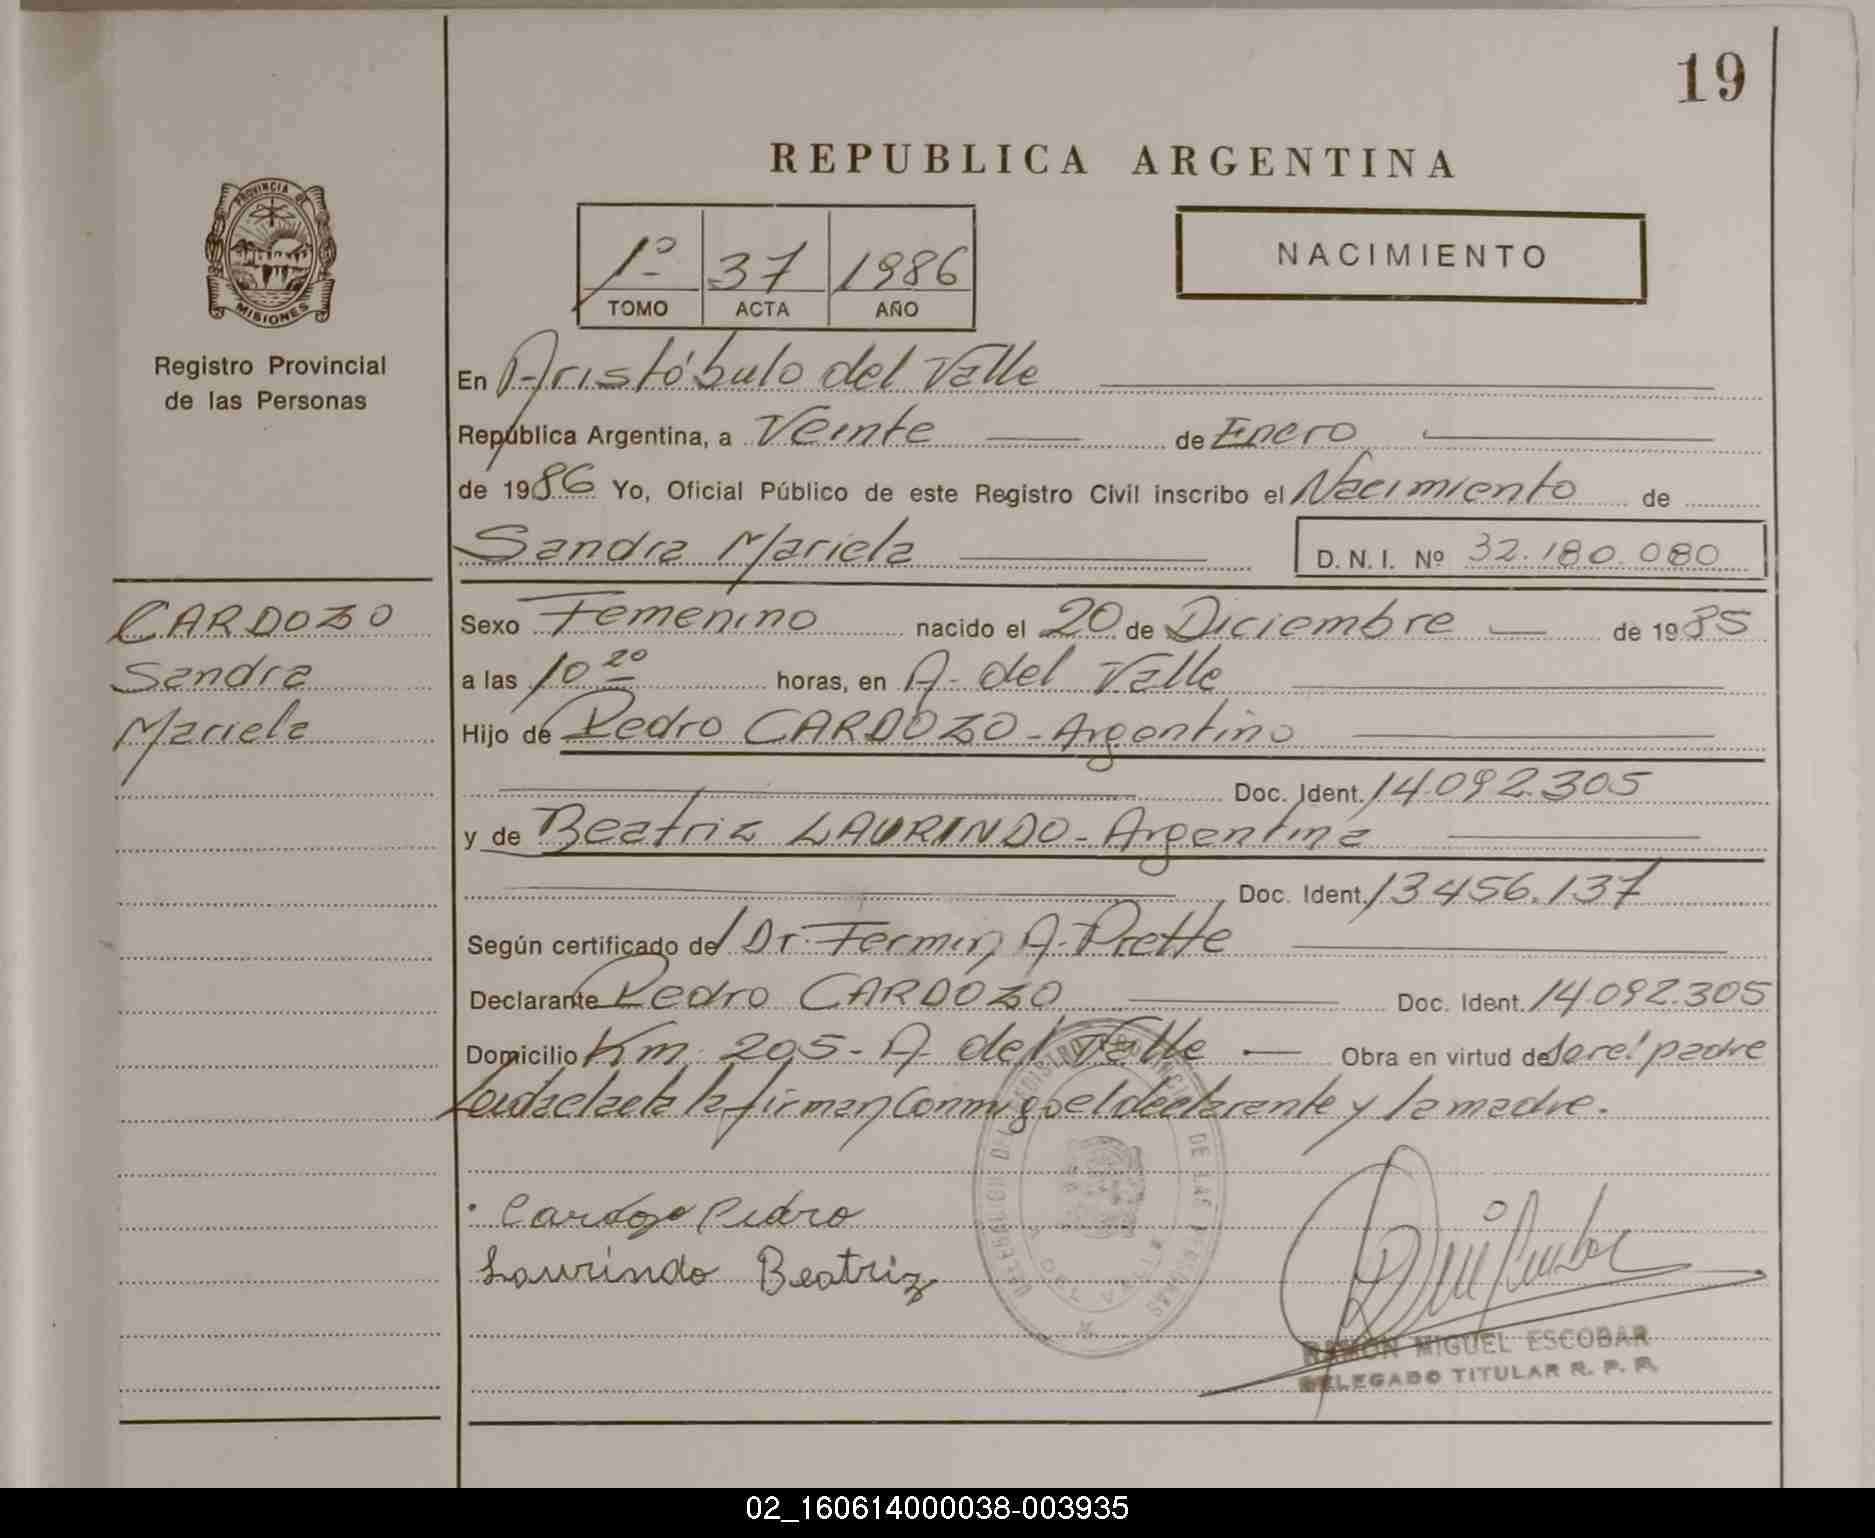 19
REPUBLICA ARGENTINA
PROVINCIA DE
MISIONES
Registro Provincial
de las Personas
1º 37 1986
TOMO ACTA AÑO
NACIMIENTO
En Aristóbulo del Valle
República Argentina, a Veinte de Enero
de 1986 Yo, Oficial Público de este Registro Civil inscribo el Nacimiento de
Sandra Mariela D. N. I. Nº 32.180.080
CARDOZO
Sandra
Mariela
Sexo Femenino nacido el 20 de Diciembre de 1985
a las 10 20 horas, en A. del Valle
Hijo de Pedro CARDOZO - Argentino
Doc. Ident. 14.092.305
y de Beatriz LAURINDO - Argentina
Doc. Ident. 13.456.137
Según certificado del Dr. Fermin A. Prette
Declarante Pedro CARDOZO Doc. Ident. 14.092.305
Domicilio Km. 205 - A. del Valle Obra en virtud de Ser el padre
Leida el acta la firman conmigo el declarante y la madre.
Cardozo Pedro
Laurindo Beatriz
DE LAS PERSONAS
RAMON MIGUEL ESCOBAR
DELEGADO TITULAR R. P. P.
02_160614000038-003935